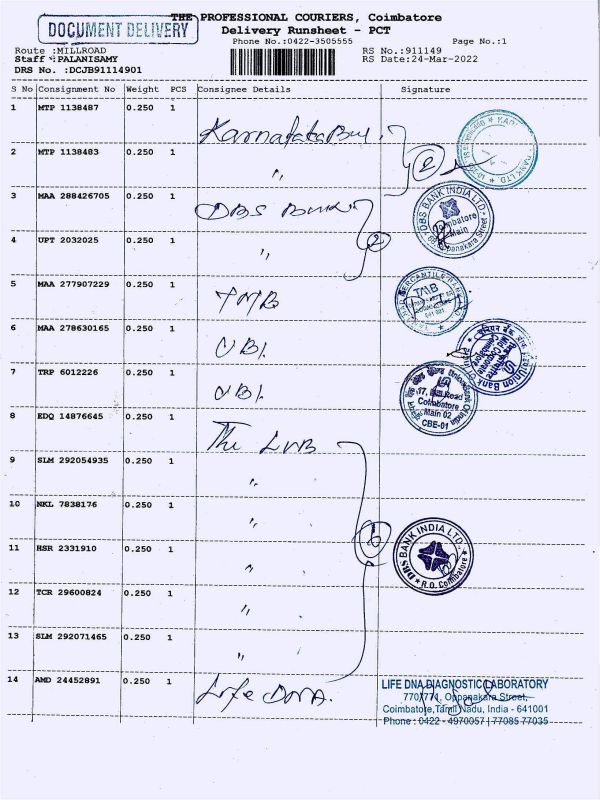 DOCUMENT DELIVERY
THE PROFESSIONAL COURIERS, Coimbatore
Delivery Runsheet - PCT
Phone No.:0422-3505555 Page No.:1
Route :MILLROAD RS No.:911149
Staff :PALANISAMY RS Date:24-Mar-2022
DRS No. :DCJB91114901
S No Consignment No Weight PCS Consignee Details Signature
1 MTP 1138487 0.250 1
Karnataka
2 MTP 1138483 0.250 1
" 2
3 MAA 288426705 0.250 1
DBS Bank
DBS BANK INDIA LTD. Coimbatore Main Oppanakara Street
4 UPT 2032025 0.250 1
" 2
5 MAA 277907229 0.250 1
TMB
TMB 641 001
6 MAA 278630165 0.250 1
UBI.
Union Bank
7 TRP 6012226 0.250 1
UBI.
17, Mill Road Coimbatore Main 02 CBE-01
8 EDQ 14876645 0.250 1
The LVB
9 SLM 292054935 0.250 1
"
10 NKL 7838176 0.250 1
" 6
11 HSR 2331910 0.250 1
"
DBS BANK INDIA LTD. R.O. Coimbatore
12 TCR 29600824 0.250 1
"
13 SLM 292071465 0.250 1
"
14 AMD 24452891 0.250 1
Life DNA.
LIFE DNA DIAGNOSTIC LABORATORY
770/771, Oppanakara Street,
Coimbatore, Tamil Nadu, India - 641001
Phone : 0422 - 4970057 | 77085 77035